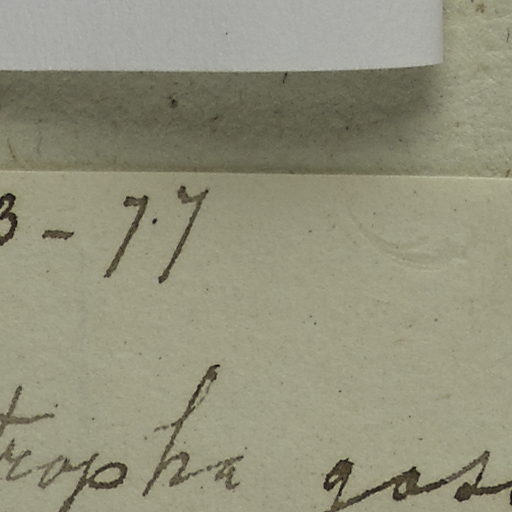 3 - 7.7
tropha goss